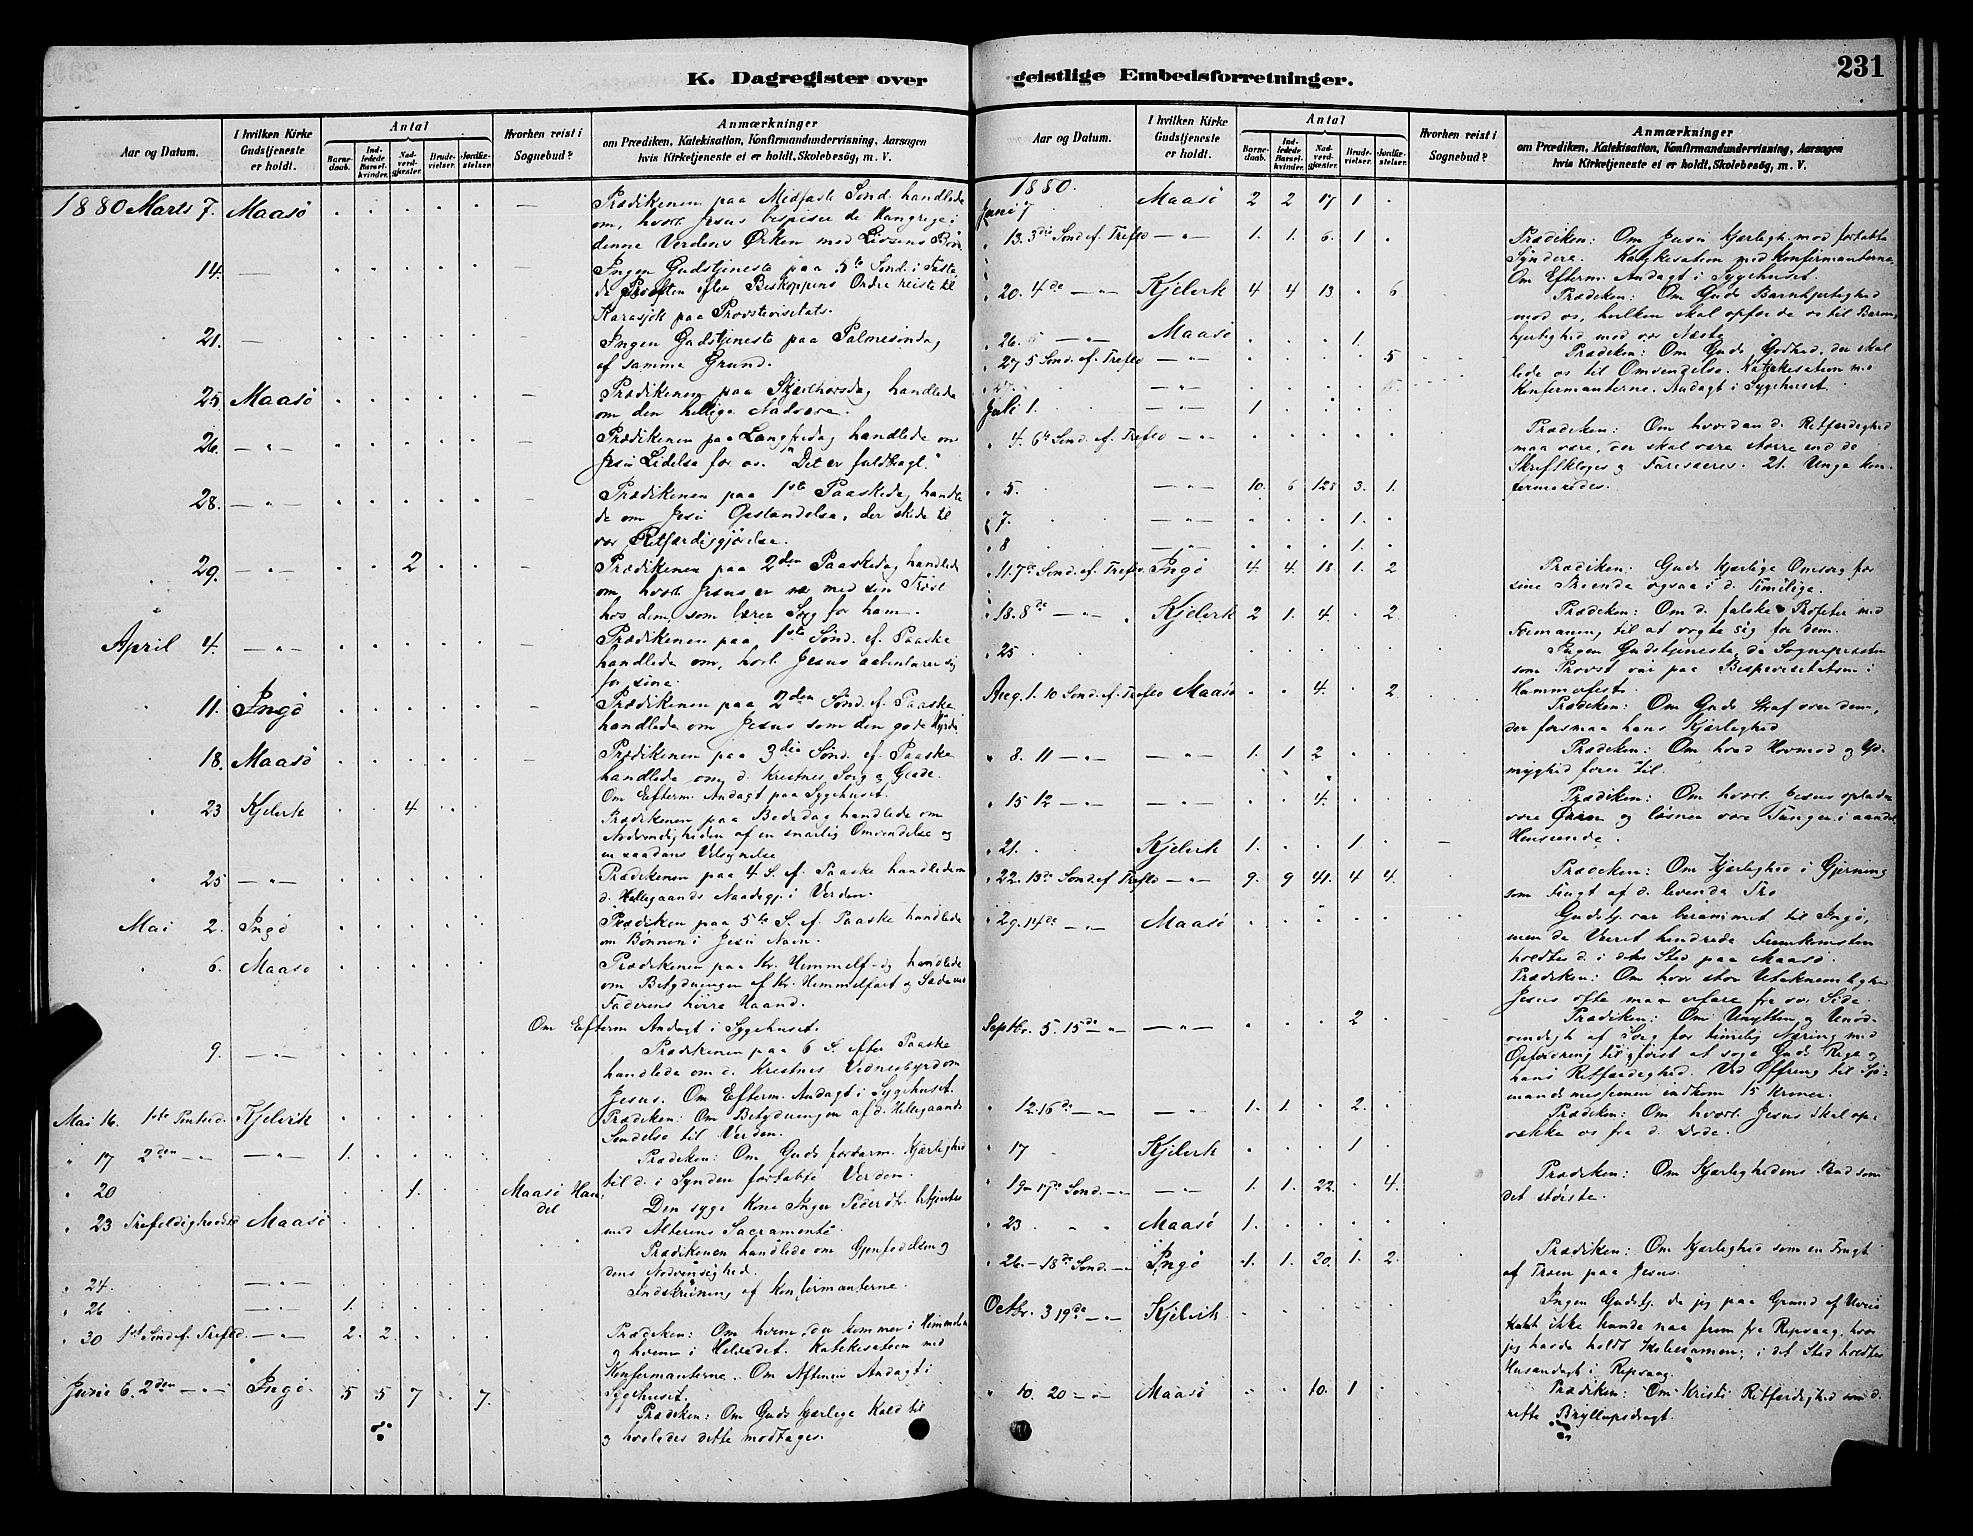 K. Dagregister over
Aar og Datum.
I hvilken Kirke Gudstjeneste er holdt.
Antal
Barnedaab.
Indledede Barselkvinder.
Nadverdgjæster.
Brudevielser.
Jordfæstelser.
Hvorhen reist i Sognebud?
Anmærkninger
om Prædiken, Katekisation, Konfirmandundervisning, Aarsagen
hvis Kirketjeneste ei er holdt, Skolebesög, m. V.
1880 Marts 7. Maasø . . . . . — Prædikenen paa Midfaste Sønd. handlede
om, hvorl. Jesus bespiser de Hungrige i
denne Verdens Ørken med Livsens Brød
14. — . . . . . — Ingen Gudstjeneste paa 5te Sønd. i Faste,
da Provsten efter Biskoppens Ordre reiste til
Karasjok paa Provstevisitats.
21. — . . . . . — Ingen Gudstjeneste paa Palmesøndag
af samme Grund.
25 Maasø . . . . . — Prædikenen paa Skjærthorsdag handlede
om den hellige Nadvere.
26. — " — . . . . . — Prædikenen paa Langfredag handlede om
Jesu Lidelse for os. "Det er fuldbragt."
28. — " — . . . . . — Prædikenen paa 1ste Paaskedag handle
de om Jesu Opstandelse, der skede til
vor Retfærdiggjørelse.
29. — " — . . 2 . . — Prædikenen paa 2den Paaskedag handlede
om, hvorl. Jesus er nær med sin Trøst
hos dem, som bærer Sorg for ham.
April 4. — " — . . . . . — Prædikenen paa 1ste Sønd. ef. Paaske
handlede om, hvorl. Jesus aabenbarer sig
for sine.
11. Ingø . . . . . — Prædikenen paa 2den Sønd. ef. Paaske
handlede om Jesus som den gode Hyrde
18. Maasø . . . . . — Prædikenen paa 3die Sønd. ef. Paaske
handlede om d. Kristnes Sorg og Glæde.
Om Efterm. Andagt paa Sygehuset.
23 Kjelvik . . 4 . . Prædikenen paa Bededag handlede om
Nødvendigheden af en snarlig Omvendelse og
en saadans Velsignelse
25 — " — . . . . . Prædikenen paa 4 S. ef. Paaske handlede om
d. Helligaands Naadegj. i Verden.
Mai 2. Ingø . . . . . Prædiken paa 5te S. ef. Paaske handlede
om Bønnen i Jesu Navn.
6. Maasø . . . . . Prædikenen paa Kr. Himmelf-dg handlede
om Betydningen af Kr. Himmelfart og Sæde ved
Faderens høire Haand.
Om Efterm Andagt i Sygehuset.
9. — " — . . . . . Prædikenen paa 6 S. efter Paaske
handlede om d. Kristnes Vidnesbyrd om
Jesus. Om Efterm. Andagt i Sygehuset.
Mai 16. 1ste Pintsed. Kjelvik . . . . . Prædiken: Om Betydningen af d. Helligaands
Sendelse til Verden.
" 17 2den — " — — " — 1. . . . . Prædiken: Om Guds forbarm. Kjærlighed
til d. i Synden fortabte Verden.
" 20 . . 1. . . Maasø Handel Den syge Kone Inger Pedersdtr. betjentes
med Alterens Sacramente.
" 23 Trefoldighedssd Maasø . . . . . Prædikenen handlede om Gjenfødelsen og
dens Nødvendighed.
" 24. — " — Indskrivning af Konfirmanterne.
" 26 — " — 1. . . . .
" 30 1ste Sønd. ef. Trefold. — " — 2. 2. . . . Prædiken: Om hvem der kommer i Himmelen
og hvem i Helvedet. Katekisation med
Konfirmanterne. Om Aftenen Andagt i
Sygehuset.
Juni 6. 2den — " — Ingø. 5 5 7 . 7. Prædiken: Om Guds kjærlige Kald til
og hvoledes dette modtages.
geistlige Embedsforretninger.
231
Aar og Datum.
I hvilken Kirke Gudstjeneste er holdt.
Antal
Barnedaab.
Indledede Barselkvinder.
Nadverdgjæster.
Brudevielser.
Jordfæstelser.
Hvorhen reist i Sognebud?
Anmærkninger
om Prædiken, Katekisation, Konfirmandundervisning, Aarsagen
hvis Kirketjeneste ei er holdt, Skolebesög, m. V.
1880.
Juni 7 Maasø 2 2 17 1 .
" 13. 3die Sønd. ef. Trefld — " — 1. 1. 6. 1 . Prædiken: Om Jesu Kjærligh. mod fortabte
Syndere. Katekisation med Konfirmanterne,
Om Efterm. Andagt i Sygehuset.
" 20. 4de — " — Kjelvik 4 4 13 . 6 Prædiken: Om Guds Barmhjertighed
mod os, hvilken skal opfordre os til Barm-
hjertighed mod vor Næste
" 26. — " — Maasø . . . 1. .
" 27 5 Sønd. ef. Trefld — " — . . . . 5 Prædiken: Om Guds Godhed, der skal
lede os til Omvendelse. Katekisation med
Konfirmanterne. Andagt i Sygehuset.
— " —
Juli 1. — " — 1 . . . .
" 4. 6te Sønd. ef. Trefld — " — . . . . . Prædiken: Om hvordan d. Retfærdighed
maa være, der skal være større end de
Skriftkloges og Fariseeres. 21. Unge kon-
firmeredes.
" 5. — " — 10. 6 128 3. 1.
" 7. — " — . . . 1. .
" 8 — " — . . . 1. .
" 11. 7de Sønd. ef. Trefld. Ingø 4. 4. 18 1. 2 Prædiken: Guds kjærlige Omsorg for
sine Troende ogsaa i d. Timelige.
" 18. 8de — " — Kjelvik 2 1. 4. . 2. Prædiken: Om d. falske Profeter med
Formaning til at vogte sig for dem.
" 25 . . . . . Ingen Gudstjeneste, da Sognepresten
som Provst var paa Bispevisitatsen i
Hammerfest.
Aug. 1. 10 Sønd. ef. Trefld Maasø . . 4. . 2. Prædiken: Om Guds Straf over dem,
der forsmaa hans Kjærlighed
" 8. 11 — " — — " — 1. 1 2 . . Prædiken: Om hvad Hovmod og Yd-
myghed fører til.
" 15 12 — " — — " — . . 4. . . Prædiken: Om hvorl. Jesus oplader
vore Øren og løsner vore Tunger i aandel.
Henseende.
" 21. Kjelvik 1. . . 1. .
" 22. 13de Sønd. ef Trefld — " — 9. 9 41. 4 4. Prædiken: Om Kjærlighed i Gjerning
som Frugt af d. levende Tro
" 29. 14de — " — Maasø . . . . . Gudstj. var berammet til Ingø,
men da Veiret hindrede Fremkomsten
holdtes d. i dets Sted paa Maasø.
Prædiken: Om hvor stor Utaknemlighed
Jesus ofte maa erfare fra vor Side.
Septbr. 5. 15de — " — — " — . . . 2 . Prædiken: Om Unytten og Unød-
vendigh. af Sorg for timelig Næring med
Opfordring til først at søge Guds Rige og
hans Retfærdighed. Ved Ofring til Sjø-
mandsmissionen indkom 15 Kroner.
" 12. 16de — " — — " — 1. 1. . 2. . Prædiken: Om hvorl. Jesus skal op-
vække os fra d. Døde.
" 17 Kjelvik . . . 1 .
" 19 — 17de Sønd. — " — — " — 1. 1. 22. . 4. Prædiken: Om Kjærlighedens Bud som
det største.
" 23 Maasø 1. . . . .
" 26 — 18de Sønd. — " — Ingø 1. 1. 20. 1. 2. Prædiken: Om Kjærlighed som en Frugt
af Troen paa Jesus.
Octbr. 3 19de — " — Kjelvik . . . . . Ingen Gudstj. da jeg paa Grund af Uveir
ikke kunde naa frem fra Repvaag, hvor
jeg havde holdt Skoleexamen; i det Sted holdtes
Husandagt i Repvaag.
" 10. 20 — " — Maasø . . 10. 1 . Prædiken: Om Kristi Retfærdighed som d.
rette Bryllupsdragt.